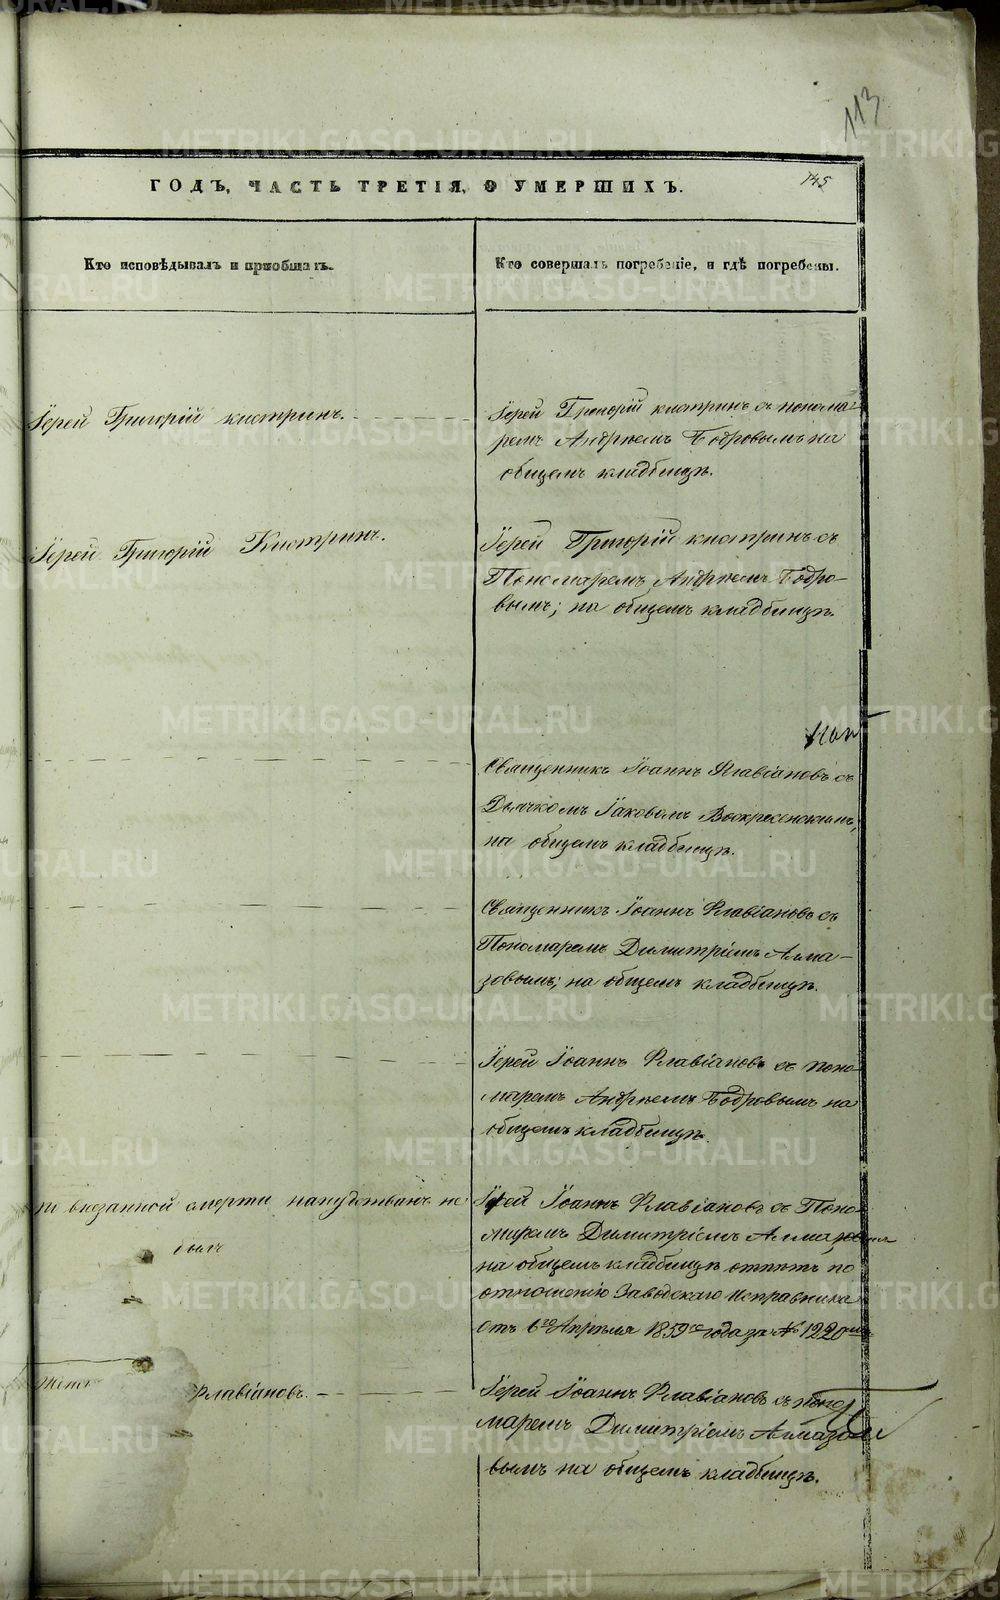 113
ГОДЪ, ЧАСТЬ ТРЕТІЯ, О УМЕРШИХЪ.
145
Кто исповѣдывалъ и пріобщалъ.
Кто совершалъ погребеніе, и гдѣ погребены.
Іерей Григорій Кистринъ.
Іерей Григорій Кистринъ съ понома-
ремъ Андреемъ Бодровымъ на
общемъ кладбищѣ.
Іерей Григорій Кистринъ.
Іерей Григорій Кистринъ съ
Пономаремъ Андреемъ Бодро-
вымъ; на общемъ кладбищѣ.
Священникъ Іоаннъ Флавіановъ съ
Дьячкомъ Іаковомъ Воскресенскимъ,
на общемъ кладбищѣ.
Священникъ Іоаннъ Флавіановъ съ
Пономаремъ Димитріемъ Алма-
зовымъ; на общемъ кладбищѣ.
Іерей Іоаннъ Флавіановъ съ поно-
маремъ Андреемъ Бодровымъ на
общемъ кладбищѣ.
по внезапной смерти напутстванъ не
былъ
Іерей Іоаннъ Флавіановъ съ Поно-
маремъ Димитріемъ Алмазовымъ
на общемъ кладбищѣ отпѣтъ по
отношенію Заводскаго Исправника
отъ 6го Апрѣля 1859го года за № 1220мъ
Флавіановъ.
Іерей Іоаннъ Флавіановъ съ поно-
маремъ Димитріемъ Алмазо-
вымъ на общемъ кладбищѣ.
METRIKI.GASO-URAL.RU